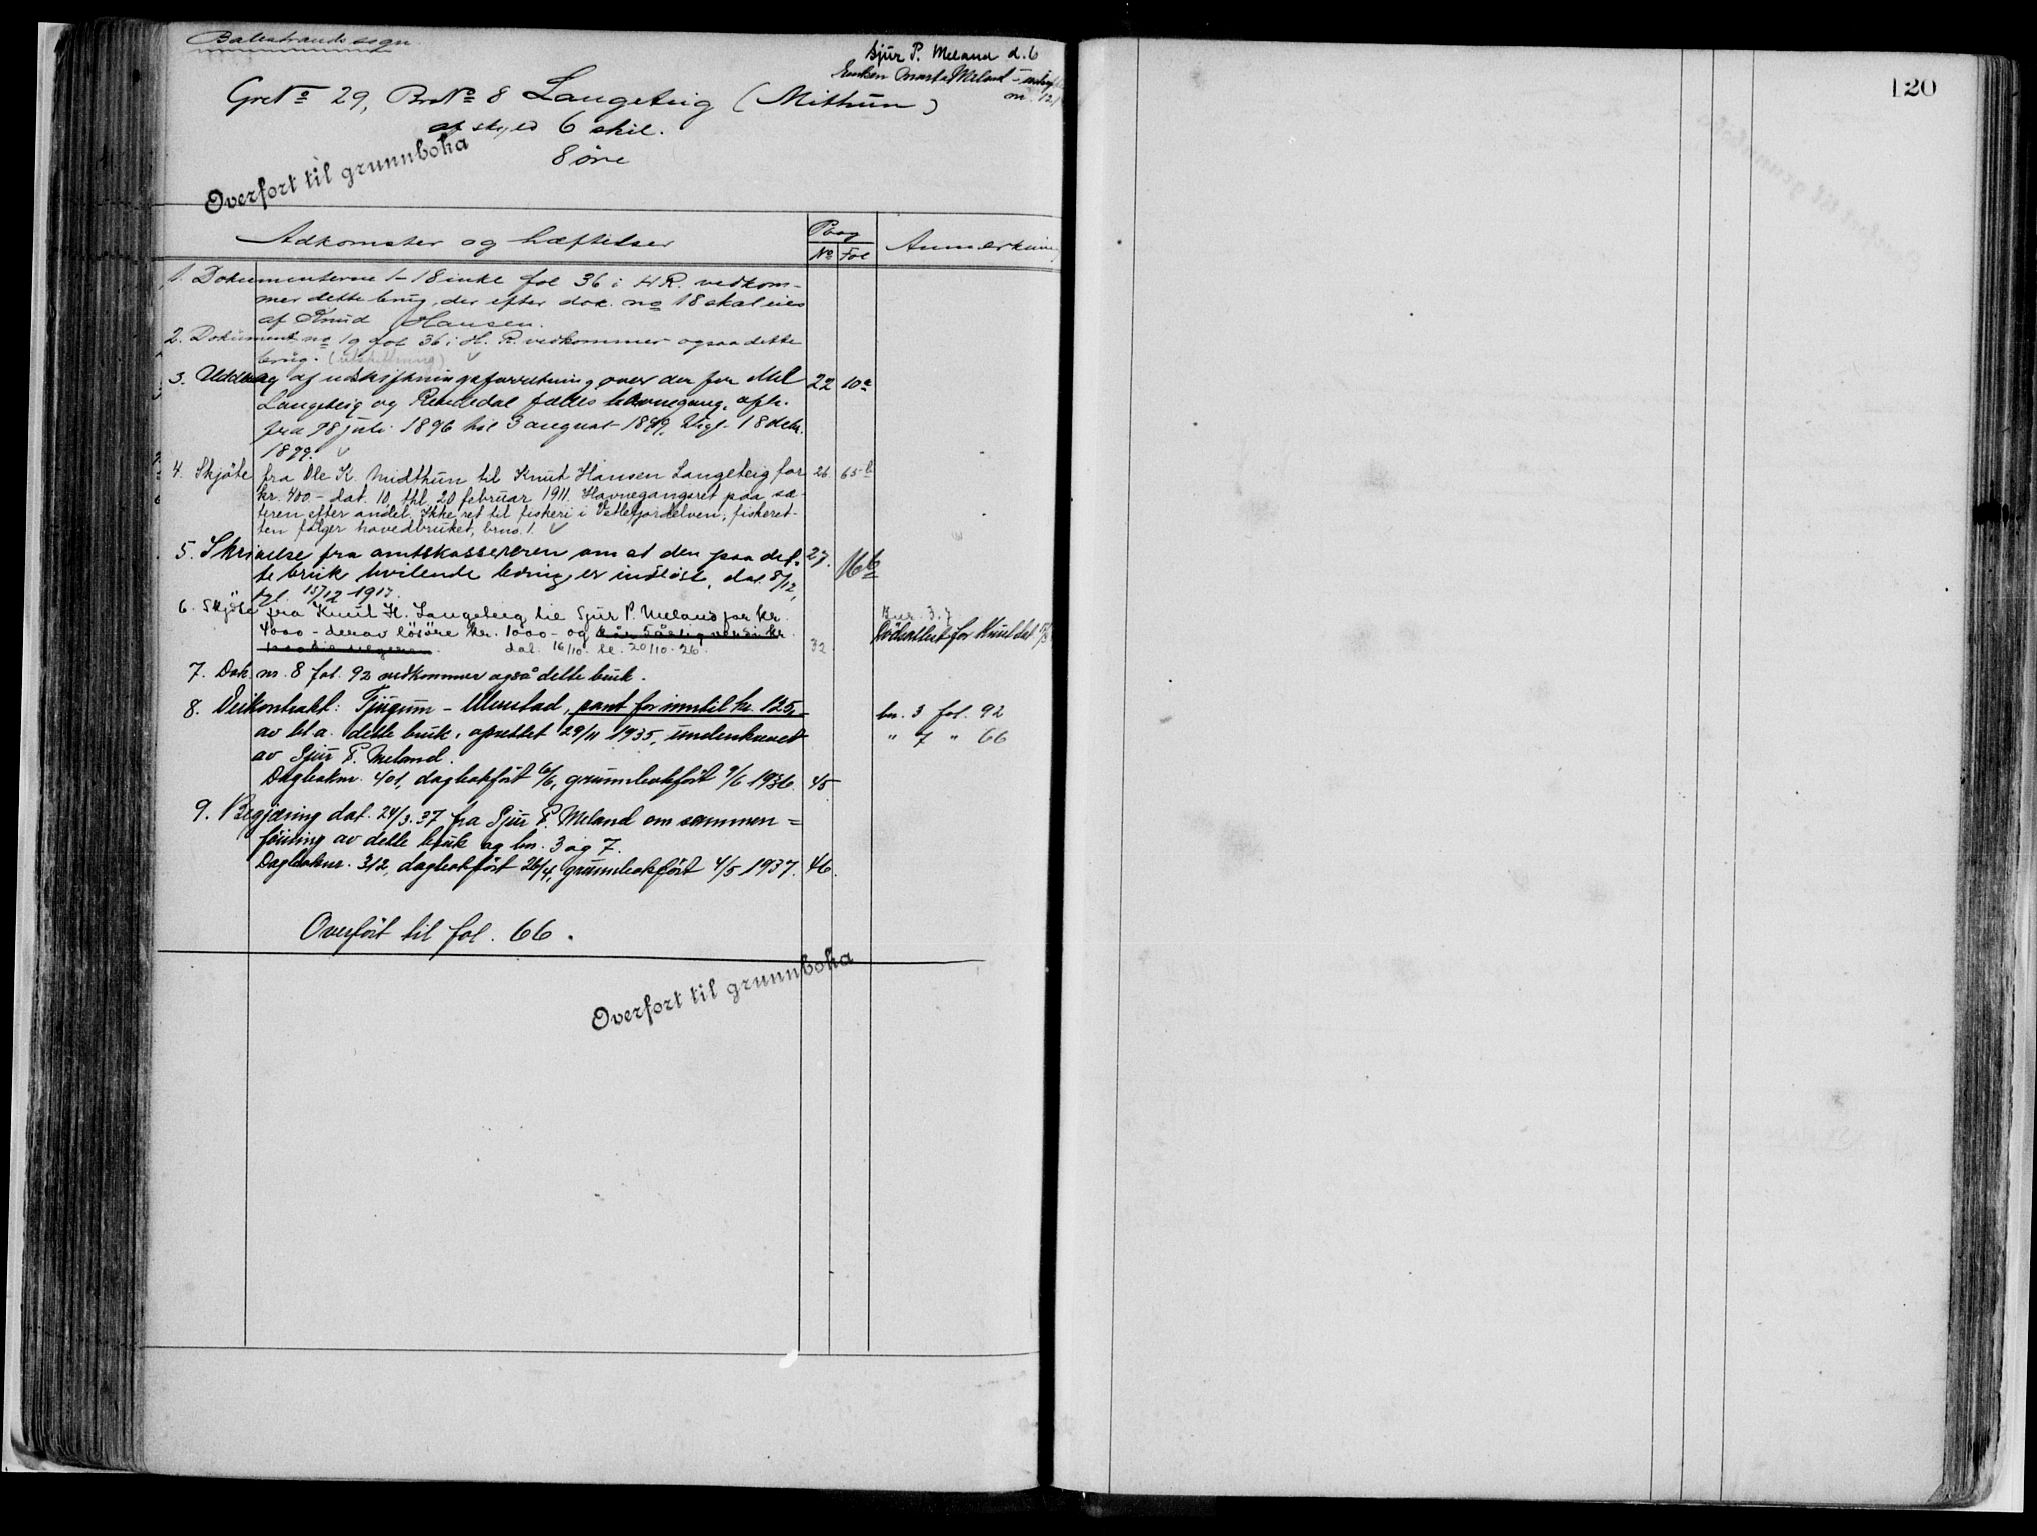 Balestrands sogn.
Sjur P. Meland d. 6
Enken Marta Meland
Gr No 29, Br No 8 Langeteig (Mithun)
af skyld 6 skil.
8 øre
Overfort til grunnboka
Adkomster og hæftelser
Pbog
No Fol
Anmerkning
1. Dokumenterne 1-18 inkl fol 36 i H R. vedkom-
mer dette brug, der efter dok. no 18 skal eies
af Knud Hansen.
2. Dokument no 19 fol 36 i H. R. vedkommer ogsaa dette
brug. (utskiftning)
3. Uddrag af udskiftningsforretning over der for Mel
Langeteig og fælles havnegang, afh.
fra 18 juli 1896 til 3 august 1899, tlgl. 18 dcbr.
1899.
22 10a
4. Skjøte fra Ole K. Midthun til Knut Hansen Langeteig for
kr. 400 - dat. 10, thl. 20 februar 1911. Havnegangsret paa sæ-
teren efter andel. Ikke ret til fiskeri i Vetlefjordelven, fiskeret-
ten følger hovedbruket, brno. 1.
26 65b
5. Skrivelse fra amtskassereren om at den paa det-
te bruk hvilende leding er indløst, dat. 8/12,
tgl. 15/12 1917.
27. 166
6. Skjøte fra Knut H. Langeteig til Sjur P. Meland for kr.
4000 - derav løsøre kr. 1000 - og kår 5årig verdi kr.
dat. 16/10. tl. 20/10.26.
32
Bnr. 3.7
Dødsattest for Knut dat
7. Dok. nr. 8 fol. 92 vedkommer også dette bruk.
8. Veikontrakt: Tjugum - Ulvestad, pant for inntil kr. 125,-
av bl a. dette bruk, oprettet 29/11 1935, underskrevet
av Sjur P. Meland.
Dagboknr. 401, dagbokført 6/6, grunnbokført 9/6 1936.
45.
bn. 3 fol. 92
" 7 " 66
9. Begjæring dat. 24/3.37 fra Sjur P. Meland om sammen=
føining av dette bruk og bn. 3 og 7.
Dagboknr. 312, dagbokført 26/4, grunnbokført 4/5 1937.
46.
Overført til fol. 66.
Overfort til grunnboka
120